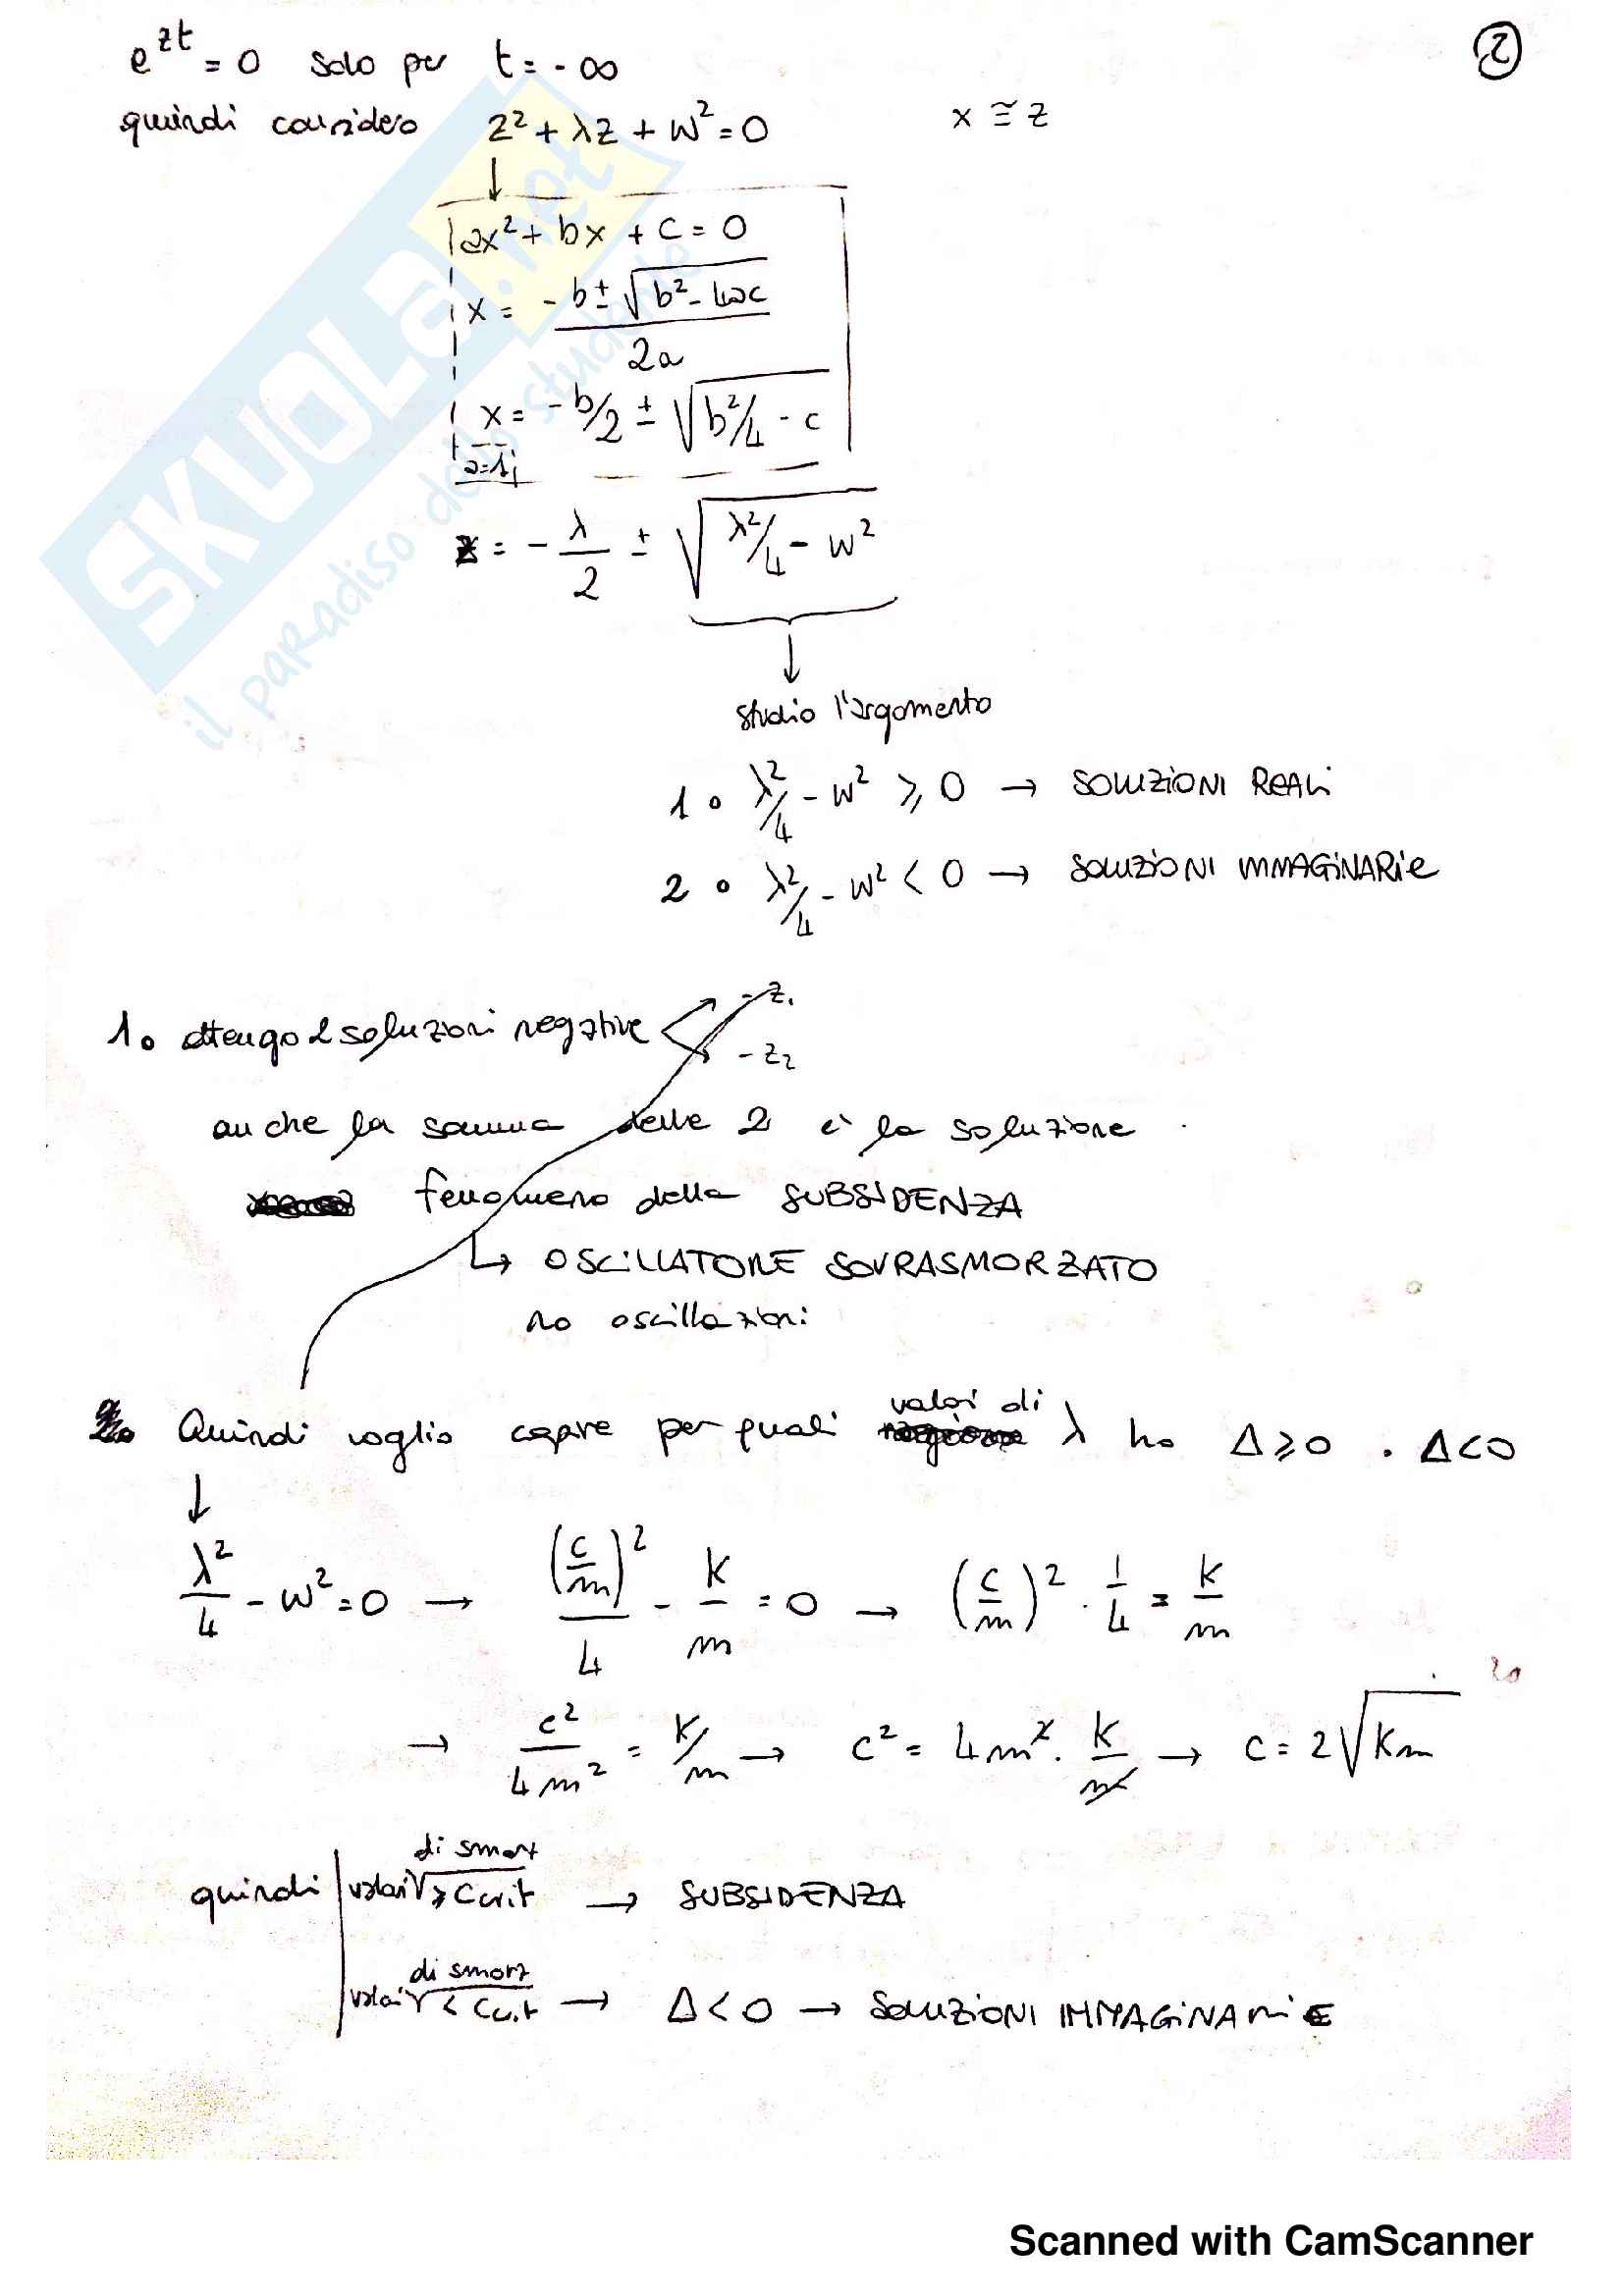 ②
e^{zt} = 0 solo per t = -∞
quindi considero z² + λz + w² = 0 x ≅ z
↓
ax² + bx + c = 0
x = (-b ± √(b² - 4ac)) / 2a
x = -b/2 ± √(b²/4 - c)
a=1
z = - λ/2 ± √(λ²/4 - w²)
↓
studio l'argomento
1° λ²/4 - w² ≥ 0 → SOLUZIONI REALI
2° λ²/4 - w² < 0 → SOLUZIONI IMMAGINARIE
1° ottengo 2 soluzioni negative - z₁
- z₂
anche la somma delle 2 è la soluzione
fenomeno della SUBSIDENZA
↳ OSCILLATORE SOVRASMORZATO
no oscillazioni
Quindi voglio capire per quali valori di λ ho Δ ≥ 0 . Δ < 0
↓
λ²/4 - w² = 0 → (c/m)²/4 - k/m = 0 → (c/m)² · 1/4 = k/m
→ c²/4m² = k/m → c² = 4m² · k/m → c = 2√km
quindi valori di smorz ≥ Ccrit → SUBSIDENZA
valori di smorz < Ccrit → Δ < 0 → SOLUZIONI IMMAGINARIE
SKUOLA.net
il paradiso dello studente
Scanned with CamScanner